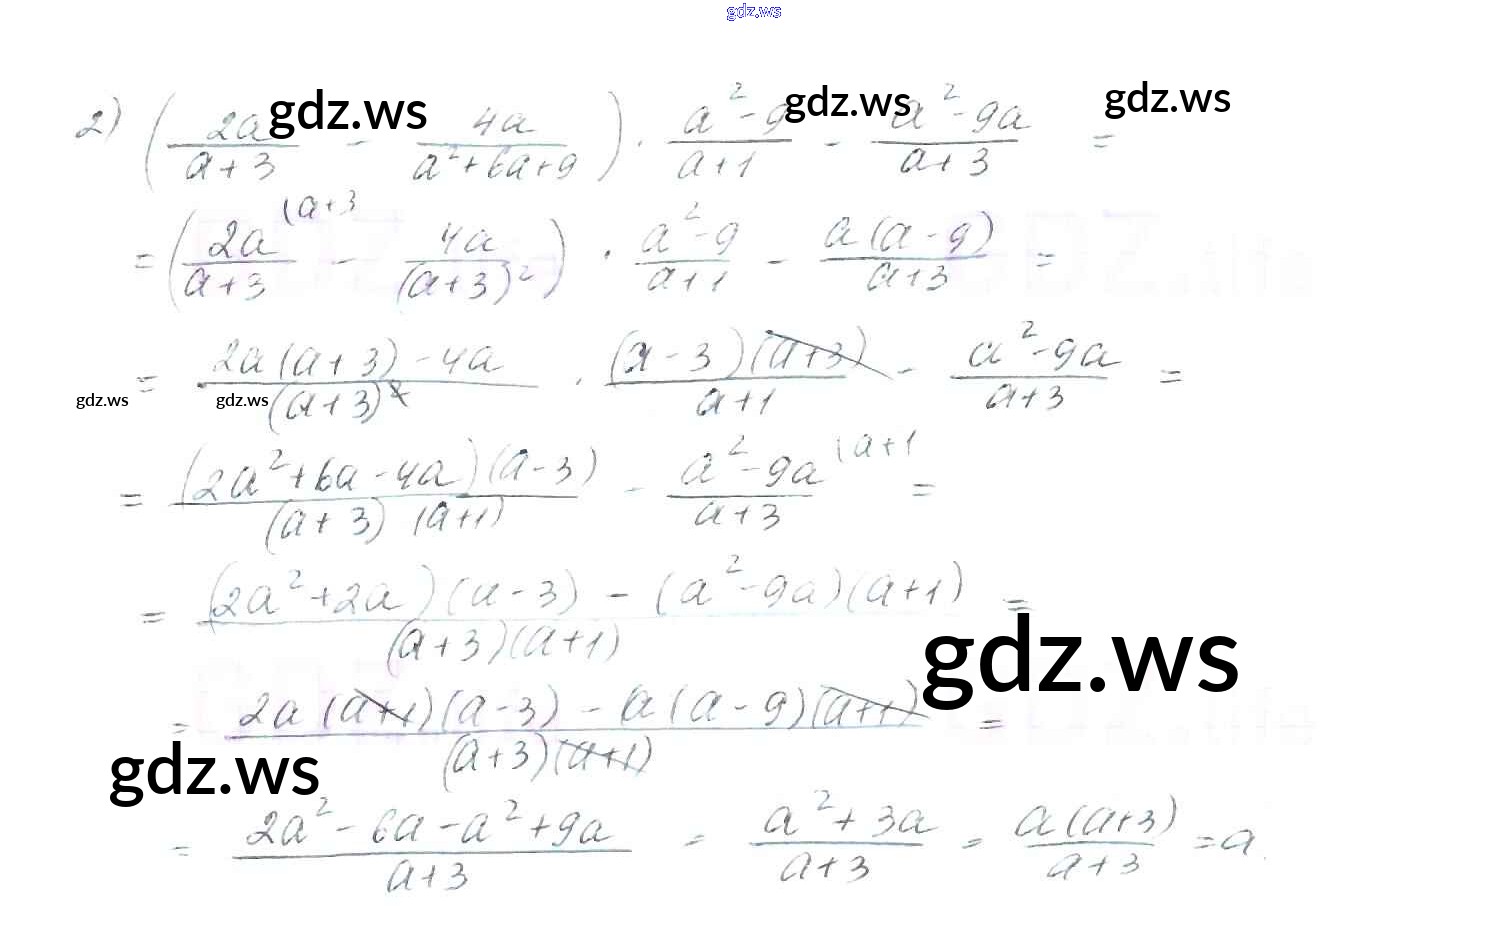 gdz.ws
2) (2a/(a+3) - 4a/(a²+6a+9)) · (a²-9)/(a+1) - (a²-9a)/(a+3) =
gdz.ws gdz.ws gdz.ws
= (2a/(a+3) (a+3 - 4a/(a+3)²) · (a²-9)/(a+1) - a(a-9)/(a+3) =
= (2a(a+3)-4a)/(a+3)² · (a-3)(a+3)/(a+1) - (a²-9a)/(a+3) =
gdz.ws gdz.ws
= (2a²+6a-4a)(a-3)/((a+3)(a+1)) - (a²-9a)/(a+3) (a+1 =
= ((2a²+2a)(a-3) - (a²-9a)(a+1))/((a+3)(a+1)) =
gdz.ws
= (2a(a+1)(a-3) - a(a-9)(a+1))/((a+3)(a+1)) =
gdz.ws
= (2a²-6a-a²+9a)/(a+3) = (a²+3a)/(a+3) = a(a+3)/(a+3) = a.